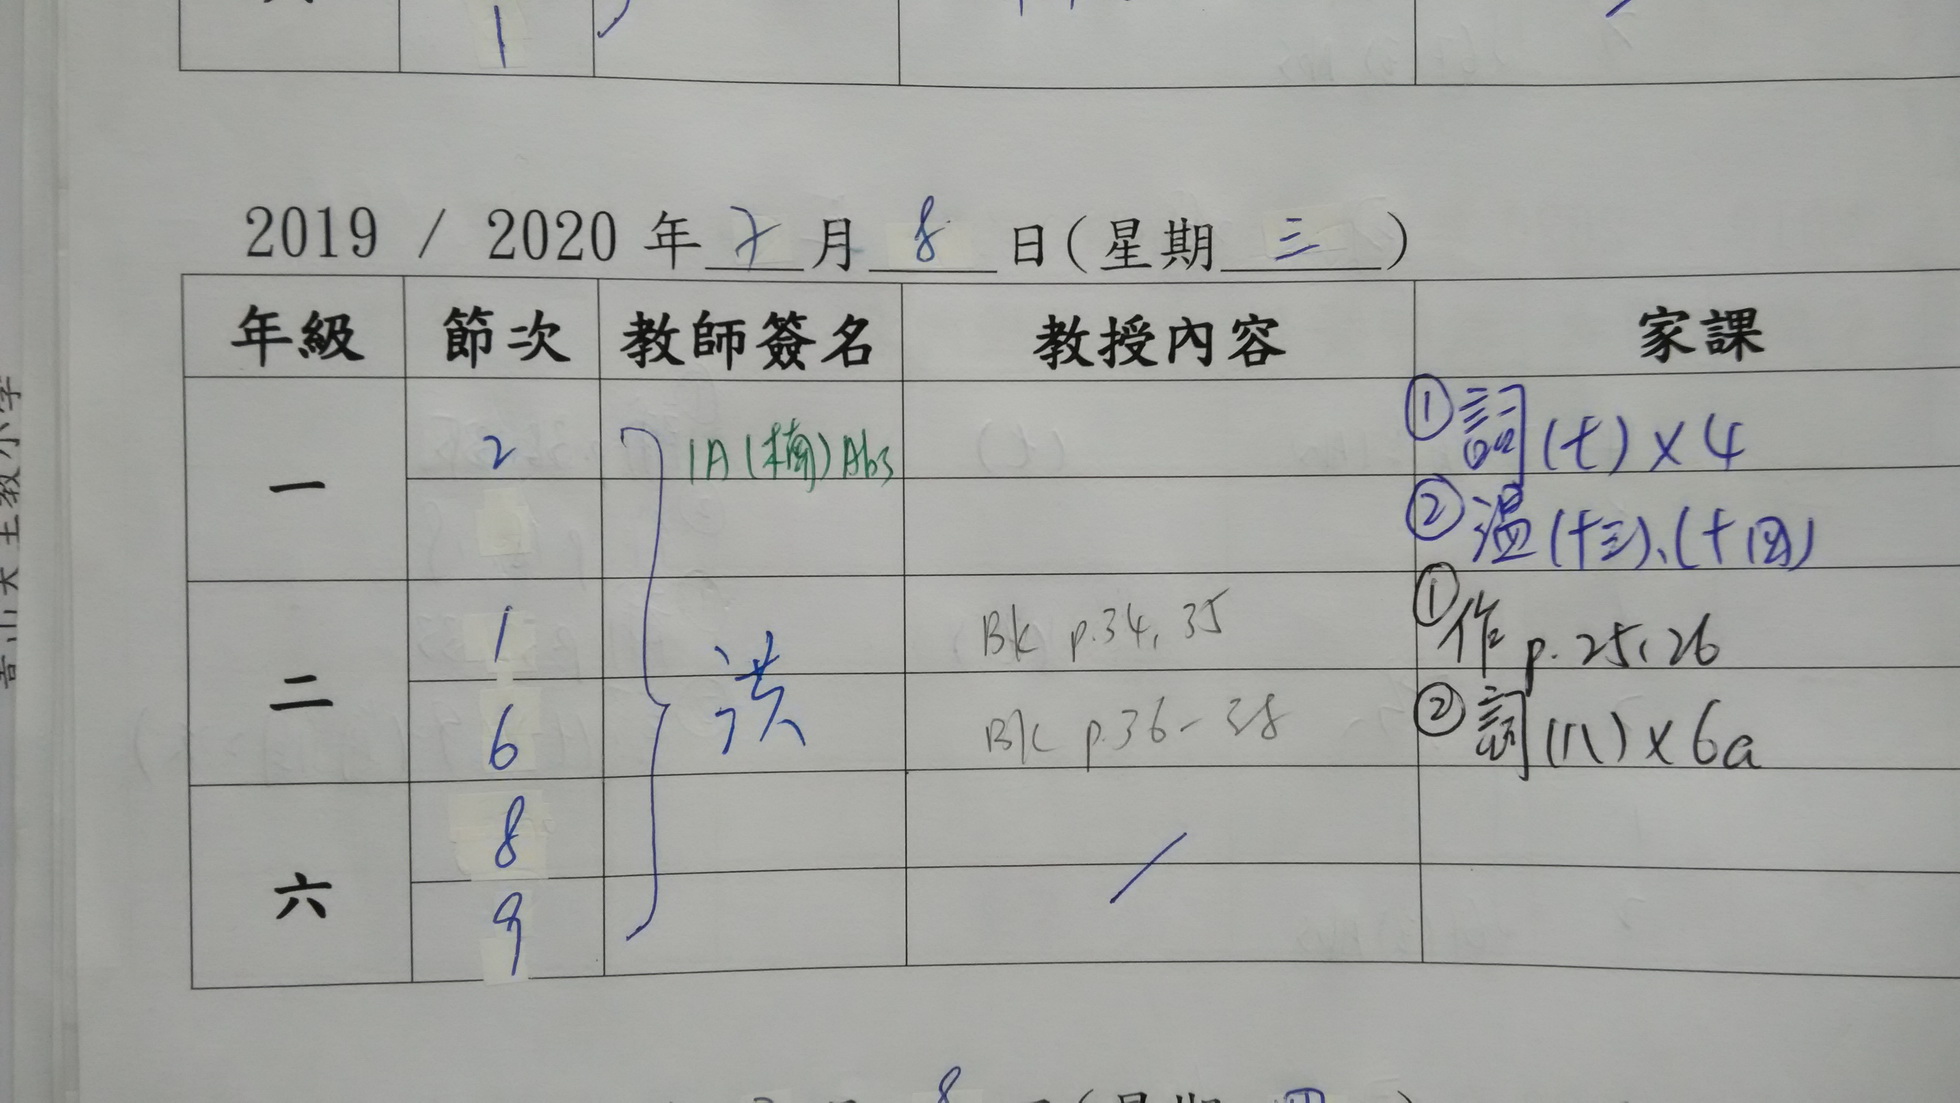 1
2019 / 2020 年 7 月 8 日(星期 三 )
年級 節次 教師簽名 教授內容 家課
一 2 1A(楠)Abs ①詞(七)×4
②溫(十三)、(十四)
二 1 洪 Bk p.34, 35 ①作 p. 25, 26
6 Bk p.36-38 ②詞(八)×6a
六 8
9
8 (星期 四 )
天主教小学